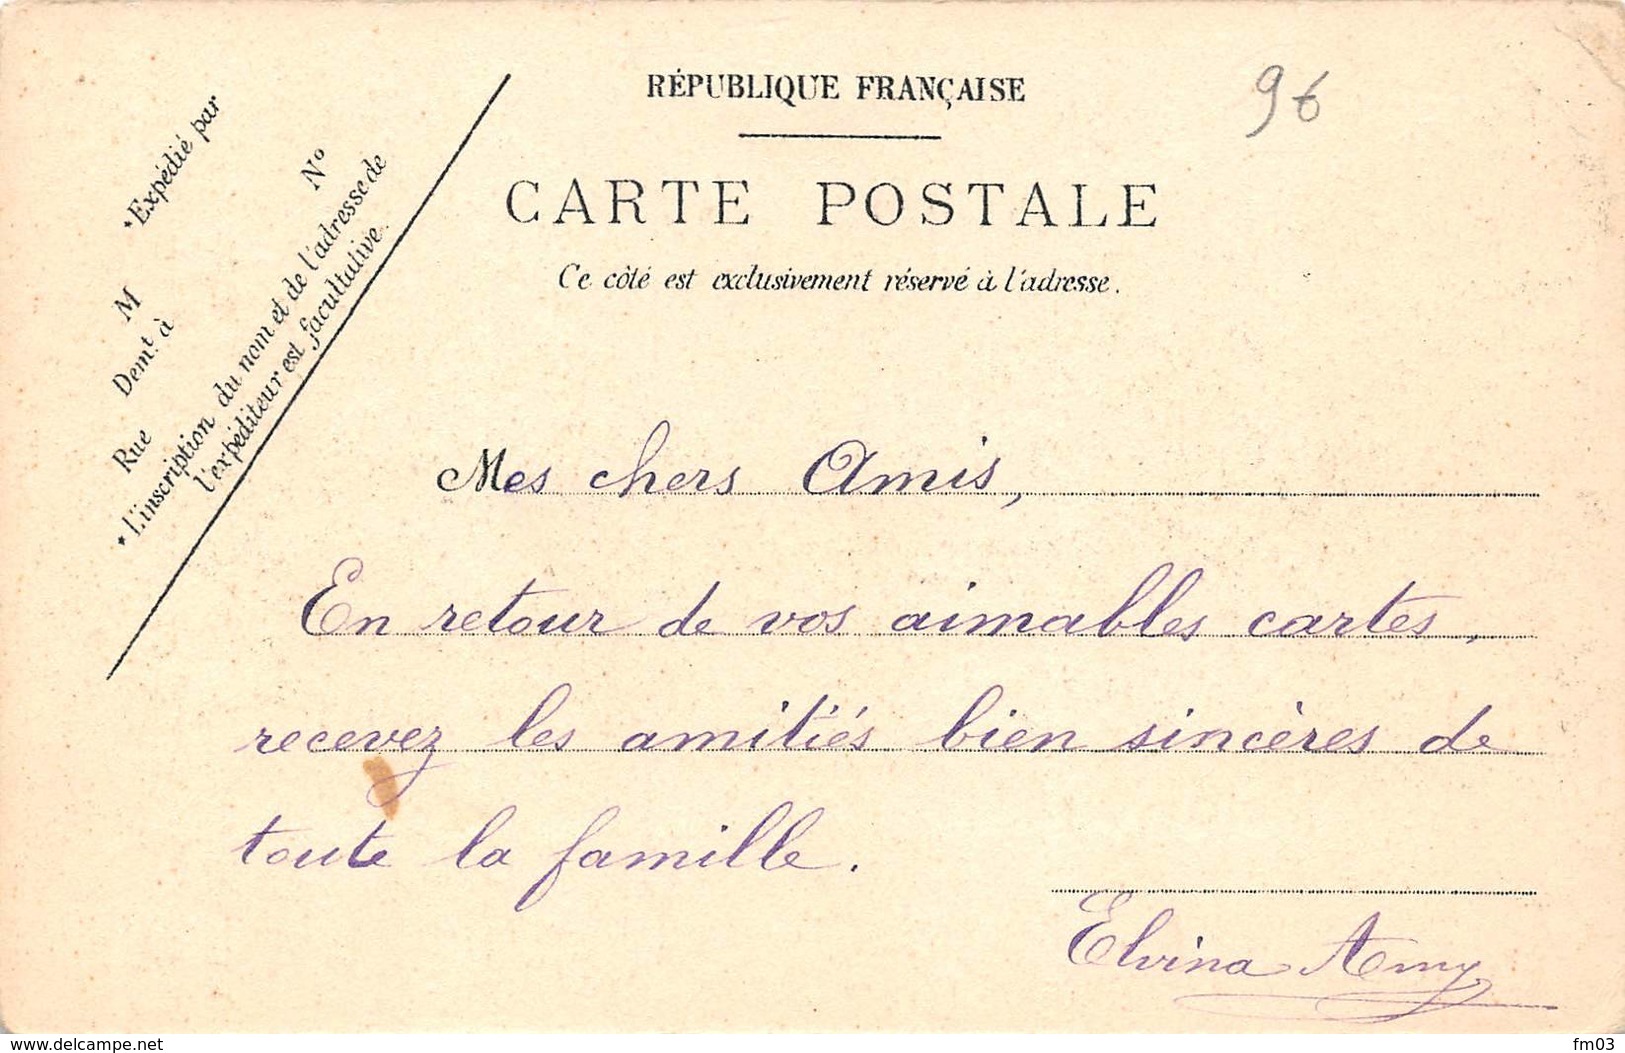 RÉPUBLIQUE FRANÇAISE
96
CARTE POSTALE
Ce côté est exclusivement réservé à l'adresse.
*Expédié par
M
Demt. à
Rue
N°
*L'inscription du nom et de l'adresse de
l'expéditeur est facultative.
Mes chers Amis,
En retour de vos aimables cartes,
recevez les amitiés bien sincères de
toute la famille.
Elvina Amy
www.delcampe.net
fm03